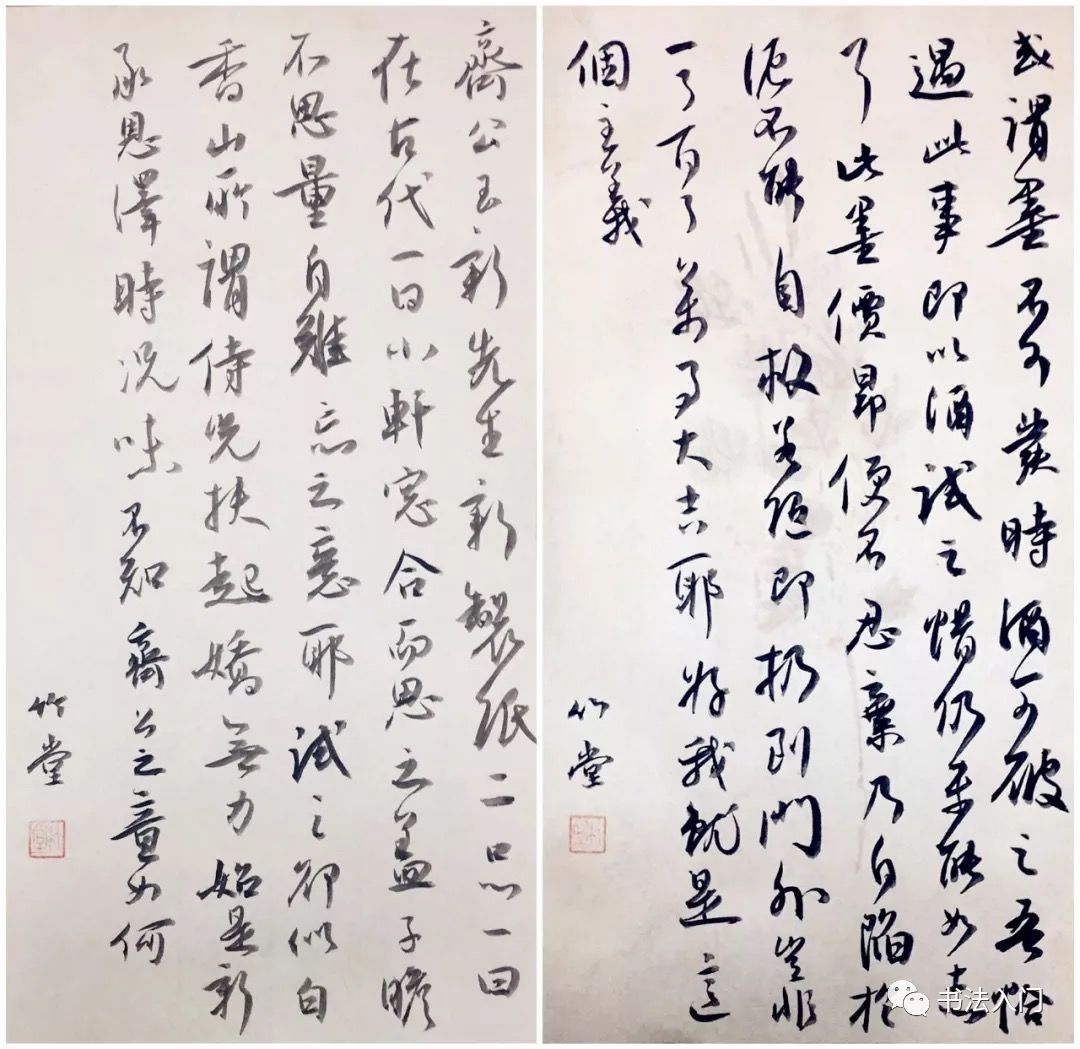 或謂墨不可發時酒可破之吾恰
遇此事即以酒試之惜仍未能如意
了此墨價昂便不忍棄乃自陷於
泥不能自救若兩即扔到門外豈非
一了百了萬事大吉耶好我就是這
個主義
竹堂
齊公玉新先生新製紙二品一曰
在古代一曰小軒窓合而思之蓋子瞻
不思量自難忘之意耶試之卻似白
香山所謂侍兒扶起嬌無力始是新
承恩澤時況味不知齊公之意如何
竹堂
书法入门